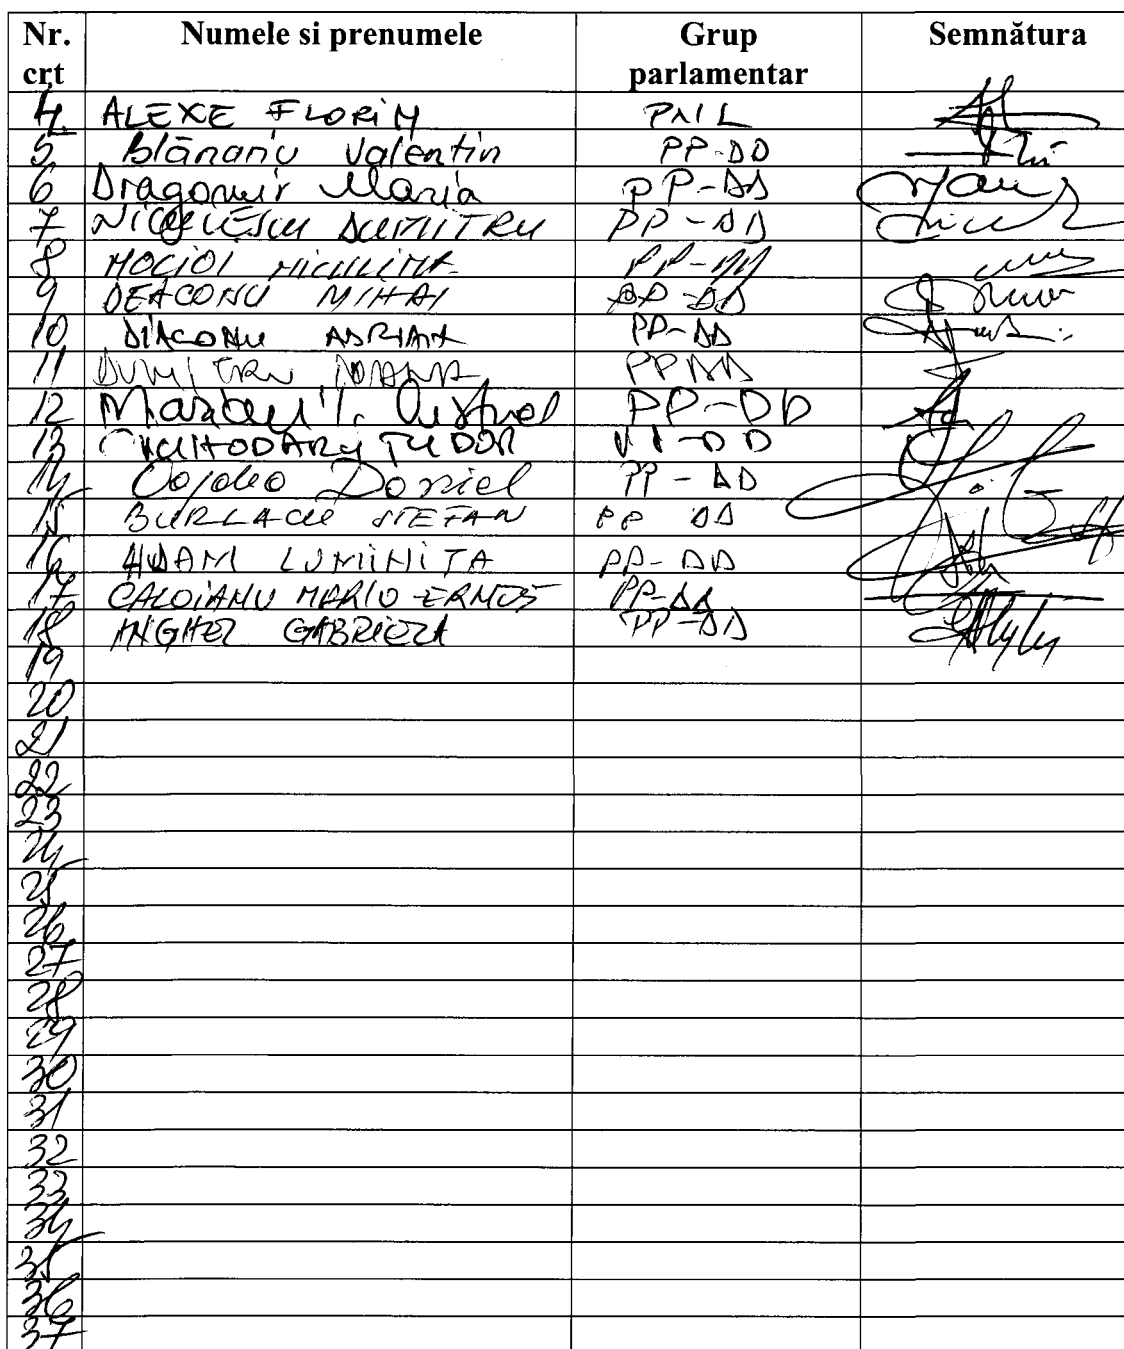 Nr. crt Numele si prenumele Grup parlamentar Semnătura
4. ALEXE FLORIN PNL
5 Blănariu Valentin PP-DD
6 Dragomir Maria PP-DD
7 NICULESCU DUMITRU PP-DD
8 MOCIOI PP-DD
9 DEACONU MIHAI PP-DD
10 DIACONU ADRIAN PP-DD
11 DUMITRU IOANA PPDD
12 PP-DD
13 CIUHODARU TUDOR PP-DD
14 Daniel PP-DD
15 BURLACU STEFAN PP DD
16 ADAM LUMINITA PP-DD
17 CALOIANU MARIO ERNEST PP-DD
18 ANGHEL GABRIELA PP-DD
19
20
21
22
23
24
25
26
27
28
29
30
31
32
33
34
35
36
37